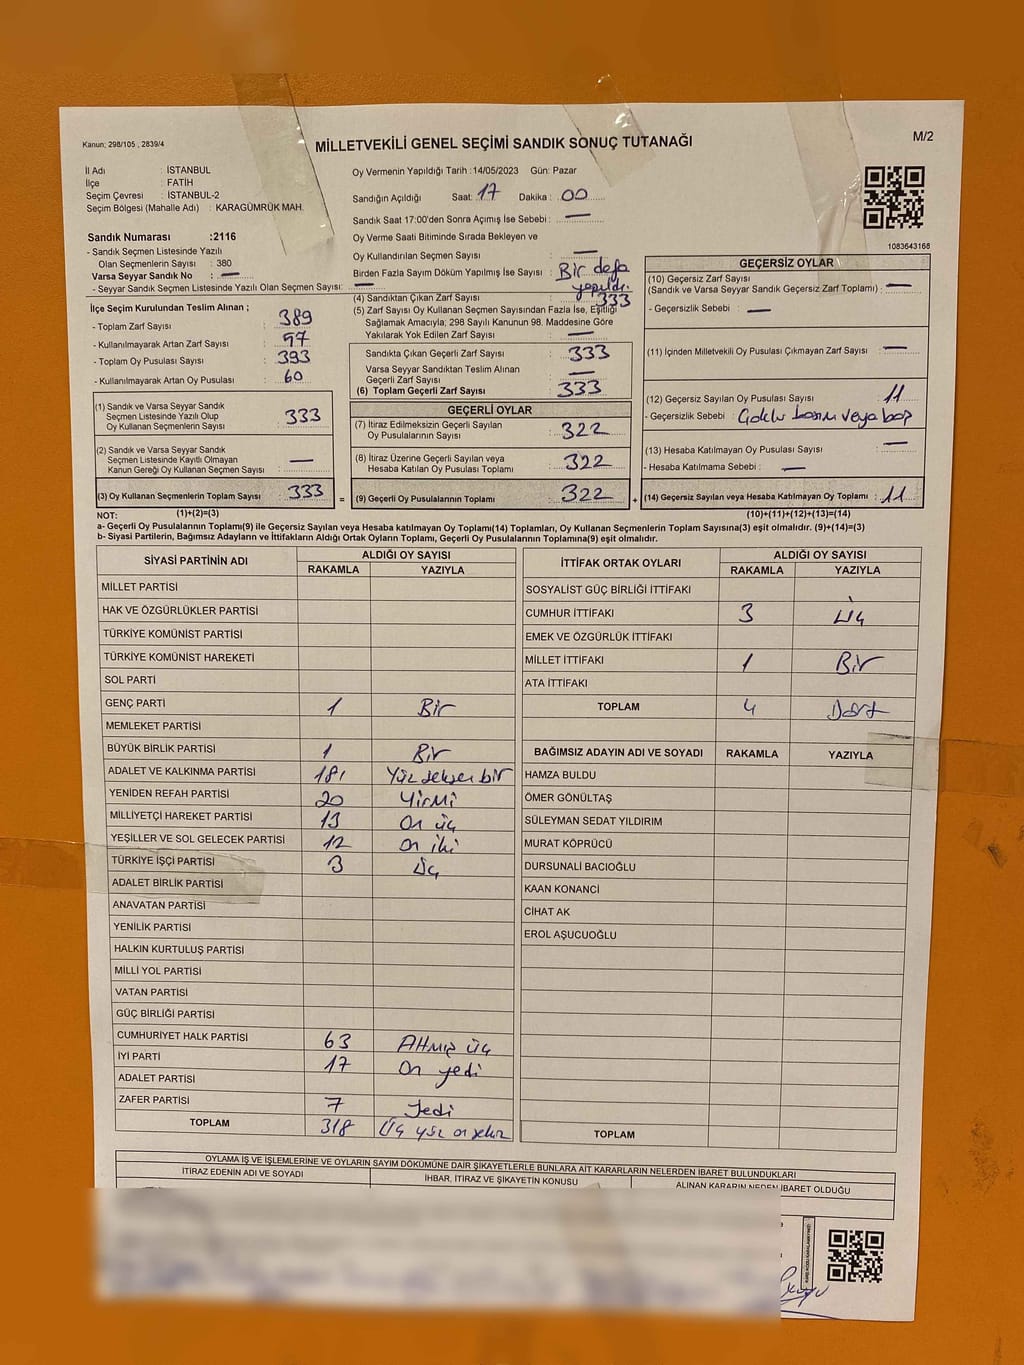 Kanun; 298/105 , 2839/4
MİLLETVEKİLİ GENEL SEÇİMİ SANDIK SONUÇ TUTANAĞI
M/2
İl Adı : İSTANBUL
İlçe : FATİH
Seçim Çevresi : İSTANBUL-2
Seçim Bölgesi (Mahalle Adı) : KARAGÜMRÜK MAH.
Sandık Numarası :2116
- Sandık Seçmen Listesinde Yazılı
Olan Seçmenlerin Sayısı : 380
Varsa Seyyar Sandık No : —
- Seyyar Sandık Seçmen Listesinde Yazılı Olan Seçmen Sayısı: —
Oy Vermenin Yapıldığı Tarih :14/05/2023 Gün: Pazar
Sandığın Açıldığı Saat: 17 Dakika : 00
Sandık Saat 17:00'den Sonra Açımış İse Sebebi : —
Oy Verme Saati Bitiminde Sırada Bekleyen ve
Oy Kullandırılan Seçmen Sayısı : —
Birden Fazla Sayım Döküm Yapılmış İse Sayısı : Bir defa
yapıldı.
1083643168
İlçe Seçim Kurulundan Teslim Alınan ;
- Toplam Zarf Sayısı : 389
- Kullanılmayarak Artan Zarf Sayısı : 57
- Toplam Oy Pusulası Sayısı : 393
- Kullanılmayarak Artan Oy Pusulası : 60
(1) Sandık ve Varsa Seyyar Sandık
Seçmen Listesinde Yazılı Olup
Oy Kullanan Seçmenlerin Sayısı : 333
(2) Sandık ve Varsa Seyyar Sandık
Seçmen Listesinde Kayıtlı Olmayan
Kanun Gereği Oy Kullanan Seçmen Sayısı : —
(3) Oy Kullanan Seçmenlerin Toplam Sayısı : 333
(1)+(2)=(3)
(4) Sandıktan Çıkan Zarf Sayısı : 333
(5) Zarf Sayısı Oy Kullanan Seçmen Sayısından Fazla İse, Eşitliği
Sağlamak Amacıyla; 298 Sayılı Kanunun 98. Maddesine Göre
Yakılarak Yok Edilen Zarf Sayısı : —
Sandıkta Çıkan Geçerli Zarf Sayısı : 333
Varsa Seyyar Sandıktan Teslim Alınan
Geçerli Zarf Sayısı : —
(6) Toplam Geçerli Zarf Sayısı : 333
GEÇERLİ OYLAR
(7) İtiraz Edilmeksizin Geçerli Sayılan
Oy Pusulalarının Sayısı : 322
(8) İtiraz Üzerine Geçerli Sayılan veya
Hesaba Katılan Oy Pusulası Toplamı : 322
= (9) Geçerli Oy Pusulalarının Toplamı : 322 +
GEÇERSİZ OYLAR
(10) Geçersiz Zarf Sayısı
(Sandık ve Varsa Seyyar Sandık Geçersiz Zarf Toplamı) : —
- Geçersizlik Sebebi : —
(11) İçinden Milletvekili Oy Pusulası Çıkmayan Zarf Sayısı : —
(12) Geçersiz Sayılan Oy Pusulası Sayısı : 11
- Geçersizlik Sebebi : Çoklu basım veya boş
(13) Hesaba Katılmayan Oy Pusulası Sayısı : —
- Hesaba Katılmama Sebebi : —
(14) Geçersiz Sayılan veya Hesaba Katılmayan Oy Toplamı : 11
(10)+(11)+(12)+(13)=(14)
NOT:
a- Geçerli Oy Pusulalarının Toplamı(9) ile Geçersiz Sayılan veya Hesaba katılmayan Oy Toplamı(14) Toplamları, Oy Kullanan Seçmenlerin Toplam Sayısına(3) eşit olmalıdır. (9)+(14)=(3)
b- Siyasi Partilerin, Bağımsız Adayların ve İttifakların Aldığı Ortak Oyların Toplamı, Geçerli Oy Pusulalarının Toplamına(9) eşit olmalıdır.
SİYASİ PARTİNİN ADI ALDIĞI OY SAYISI
RAKAMLA YAZIYLA
MİLLET PARTİSİ
HAK VE ÖZGÜRLÜKLER PARTİSİ
TÜRKİYE KOMÜNİST PARTİSİ
TÜRKİYE KOMÜNİST HAREKETİ
SOL PARTİ
GENÇ PARTİ 1 Bir
MEMLEKET PARTİSİ
BÜYÜK BİRLİK PARTİSİ 1 Bir
ADALET VE KALKINMA PARTİSİ 181 Yüz seksen bir
YENİDEN REFAH PARTİSİ 20 Yirmi
MİLLİYETÇİ HAREKET PARTİSİ 13 On üç
YEŞİLLER VE SOL GELECEK PARTİSİ 12 On iki
TÜRKİYE İŞÇİ PARTİSİ 3 Üç
ADALET BİRLİK PARTİSİ
ANAVATAN PARTİSİ
YENİLİK PARTİSİ
HALKIN KURTULUŞ PARTİSİ
MİLLİ YOL PARTİSİ
VATAN PARTİSİ
GÜÇ BİRLİĞİ PARTİSİ
CUMHURİYET HALK PARTİSİ 63 Altmış üç
İYİ PARTİ 17 On yedi
ADALET PARTİSİ
ZAFER PARTİSİ 7 Yedi
TOPLAM 318 Üç yüz on sekiz
İTTİFAK ORTAK OYLARI ALDIĞI OY SAYISI
RAKAMLA YAZIYLA
SOSYALİST GÜÇ BİRLİĞİ İTTİFAKI
CUMHUR İTTİFAKI 3 Üç
EMEK VE ÖZGÜRLÜK İTTİFAKI
MİLLET İTTİFAKI 1 Bir
ATA İTTİFAKI
TOPLAM 4 Dört
BAĞIMSIZ ADAYIN ADI VE SOYADI RAKAMLA YAZIYLA
HAMZA BULDU
ÖMER GÖNÜLTAŞ
SÜLEYMAN SEDAT YILDIRIM
MURAT KÖPRÜCÜ
DURSUNALİ BACIOĞLU
KAAN KONANCİ
CİHAT AK
EROL AŞUCUOĞLU
TOPLAM
OYLAMA İŞ VE İŞLEMLERİNE VE OYLARIN SAYIM DÖKÜMÜNE DAİR ŞİKAYETLERLE BUNLARA AİT KARARLARIN NELERDEN İBARET BULUNDUKLARI
İTİRAZ EDENİN ADI VE SOYADI İHBAR, İTİRAZ VE ŞİKAYETİN KONUSU ALINAN KARARIN NEDEN İBARET OLDUĞU